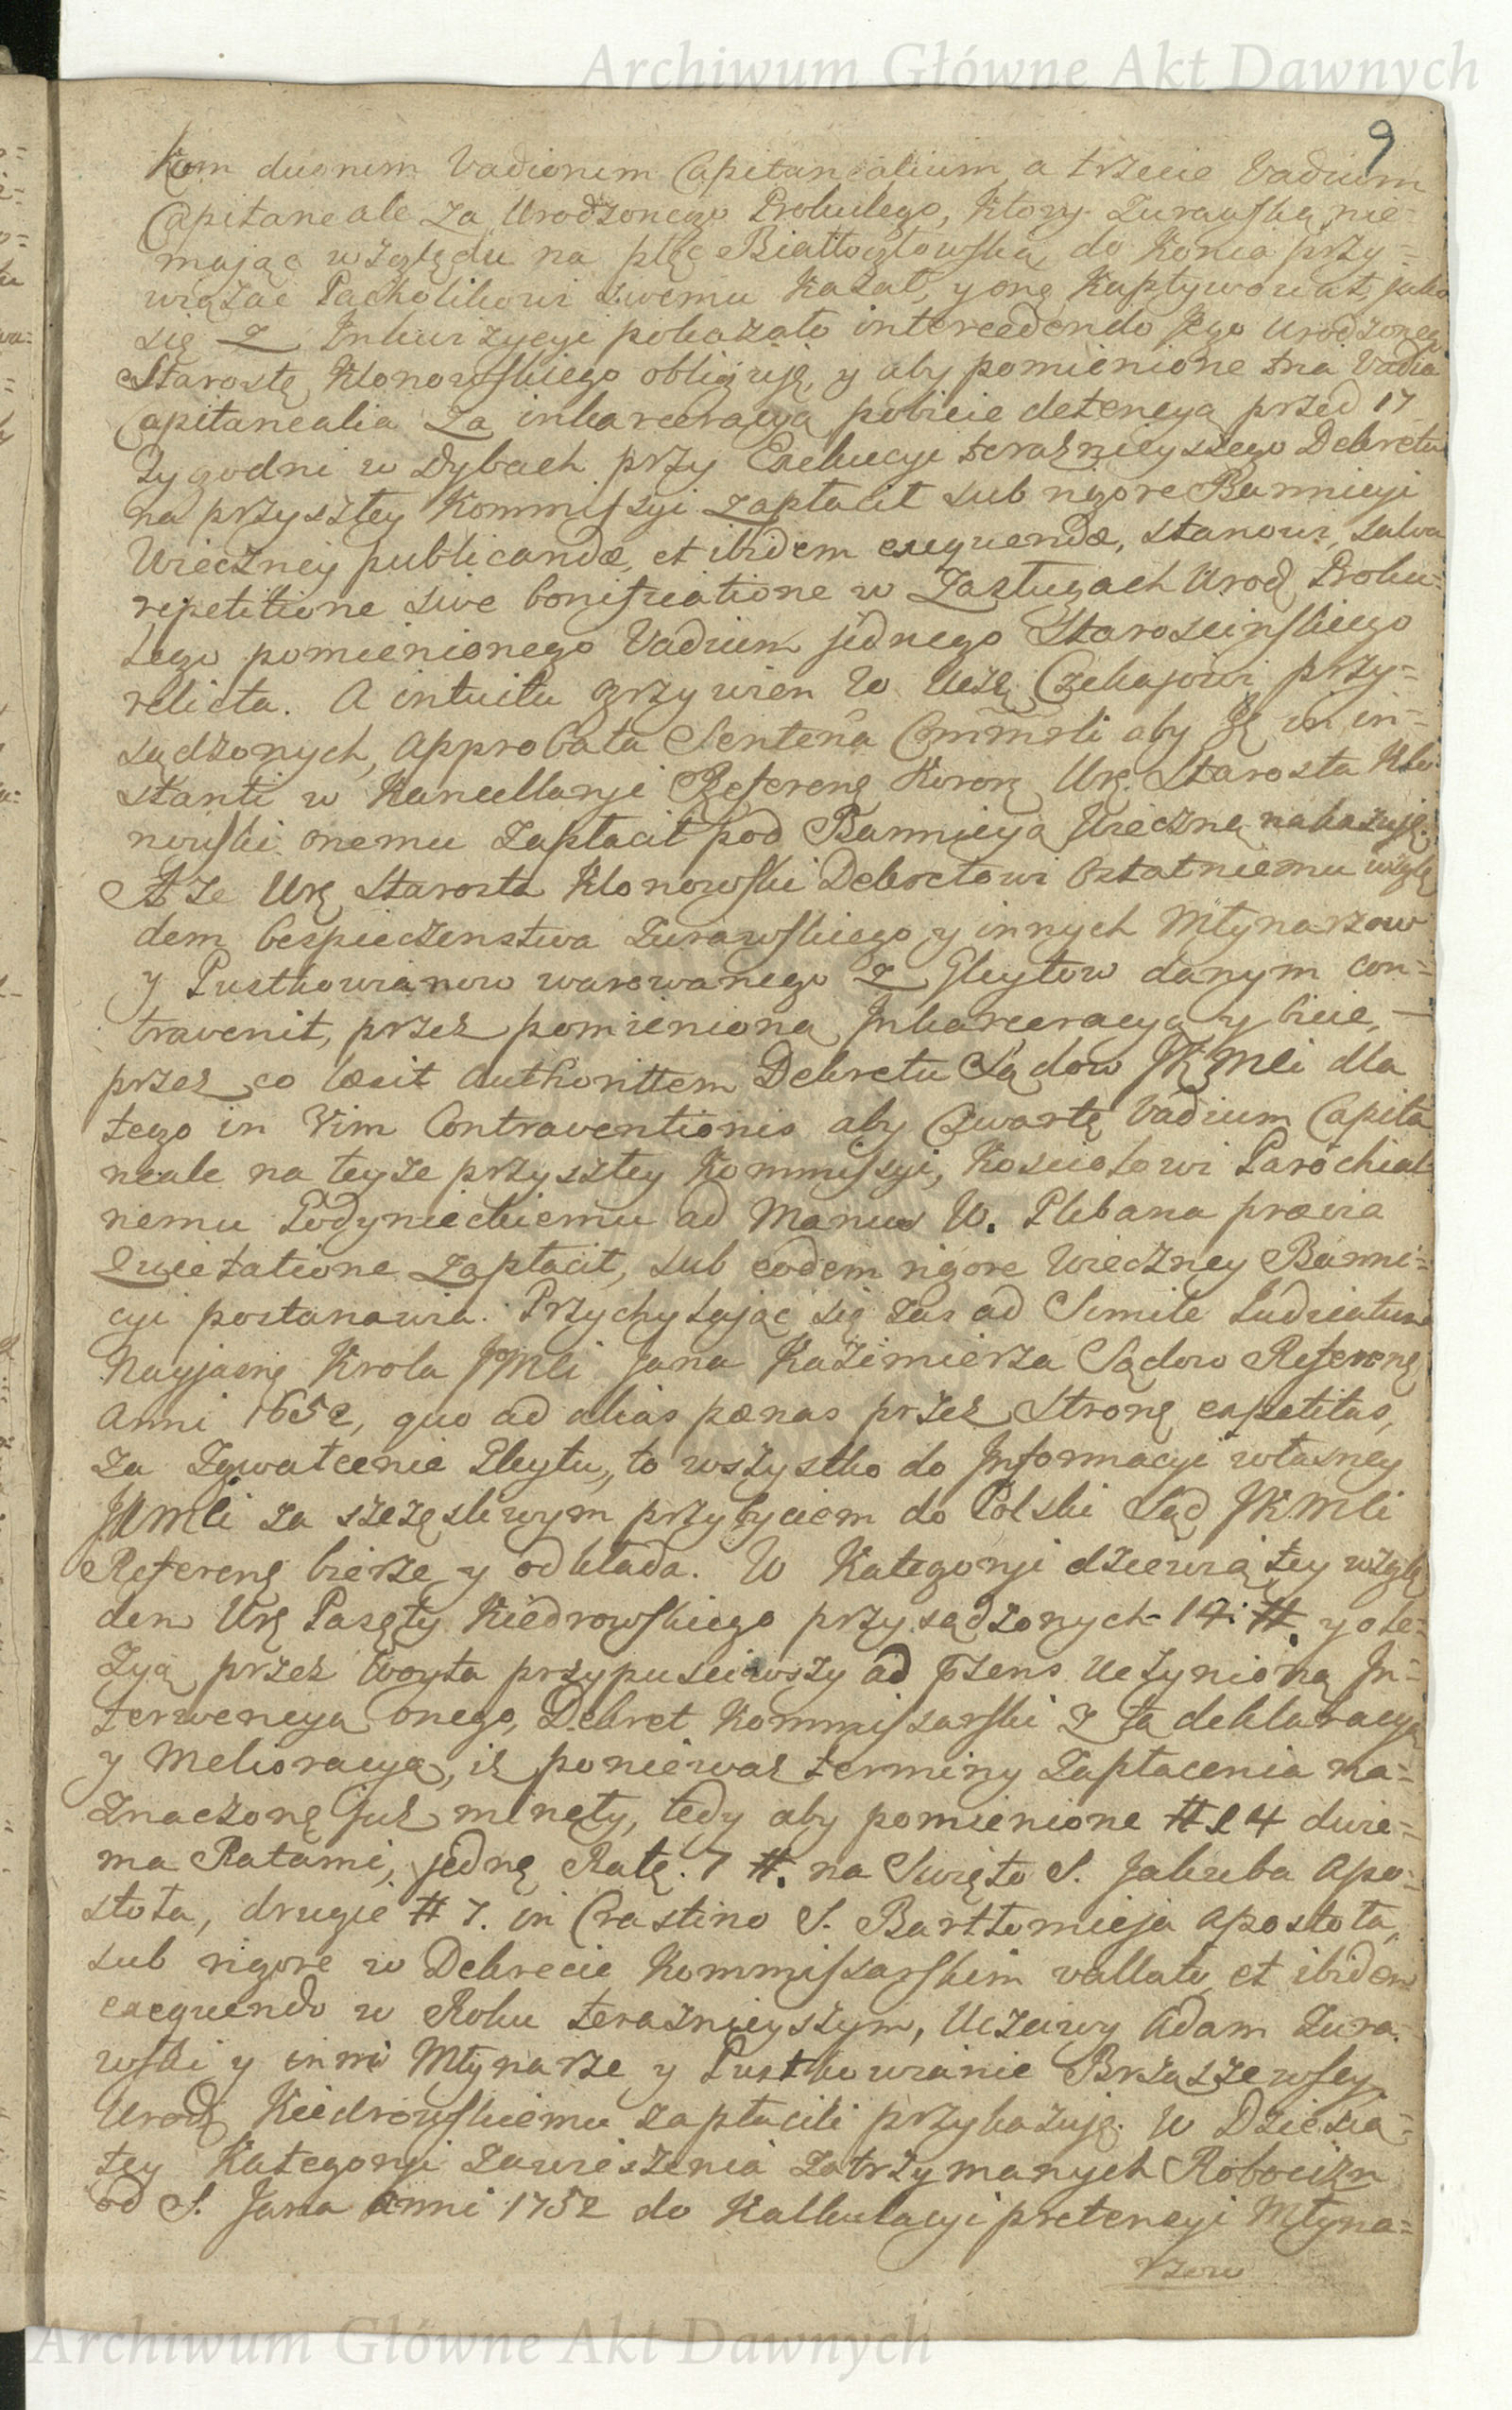 Archiwum Główne Akt Dawnych
9
Kom duorum Vadiorum Capitanealium a trzecie Vadium
Capitaneale za Urodzonego Prokulego, ktory Zurawską nie=
mając względu na płeć Białłogłowską do konia przy=
wiązać Pacholikowi swemu kazał, y oną kaptywował, jako
się z Inkwizycyi pokazało intercedendo jego Urodzoneg
Starostę Klonowskiego obligują, y aby pomienione tria Vadia
Capitanealia za inkarceracyą pobicie detencyą przed 17
Tygodni w Dybach przy Exekucyi teraznieyszego Dekretu
na przyszłey Kommissyi zapłacił sub rigore Bannicyi
Wieczney publicandæ, et ibidem exequendæ, stanowi, salva
repetitione sive bonificatione w Zasługach Urodz Proku=
lego pomienionego Vadium jednego Starościńskiego
relicta. A intuitu grzywien W Ucżę Czekajowi przy=
sądzonych, Approbata Sentena Commrli aby Ię in in=
stanti w Kancellarji Referenę Koronę Urę. Starosta Klo=
nowski onemu zapłacił pod Bannicyą Wieczną nakazuję.
A ze Urę Starosta Klonowski Dekretowi Ostatniemu wzglę
dem bespieczenstwa Zurawskiego y innych Młynarzow
y Pustkowianow warowanego z Gleytow danym con=
travenit, przez pomienioną Inkarceracyą y bicie,
przez co læsit Authorittem Dekretu Sądow JKMci dla
tego in Vim Contraventionis aby Czwartę Vadium Capita
neale na teyze przyszłey Kommissyi, Kosciołowi Parochial=
nemu Podynieckiemu ad Manus W. Plebana prævia
Quietatione zapłacił, sub eodem rigore Wieczney Banni=
cyi postanawia. Przychylając się zas ad Simile Iudicatum
Nayjasnę Krola JoMci Jana Kazimierza Sądow Referenę
Anni 1652, quo ad alias pænas przez Stronę expetitas,
za Zgwałcenie Gleytu, to wszystko do Informacyi własney
JKMci za szczęsliwym przybyciem do Polski Sąd JKMci
Referenę bierze y odkłada. W Kategoryi dziewiątey wzglę
dem Urę Pasęty Kiedrowskiego przysądzonych 14: #. y ole=
Zyą przez Woyta przypusciwszy ad pzens Uczynioną In=
terwencyą onego, Dekret Kommissarski z tą deklaracyą
y Melioracyą, iz poniewaz terminy zapłacenia na=
znaczonę juz minęły, tedy aby pomienione # 14 dwie=
ma Ratami, jedną Ratę. 7 #. na Swięto S. Jakuba Apo=
stoła, drugie # 7. in Crastino S. Barttomieja Apostoła,
sub rigore w Dekrecie Kommissarskim vallato et ibidem
exequendo w Roku teraznieyszym, Uczciwy Adam Zura=
wski y inni Młynarze y Pustkowianie Brzaszewscy
Urodz Kiedrowskiemu zapłacili przykazuję. W Dziesią=
tey Kategoryi zawieszenia zatrzymanych Robocizn
od S. Jana Anni 1752 do Kalkulacyi pretensyi Młyna=
rzow
Archiwum Główne Akt Dawnych